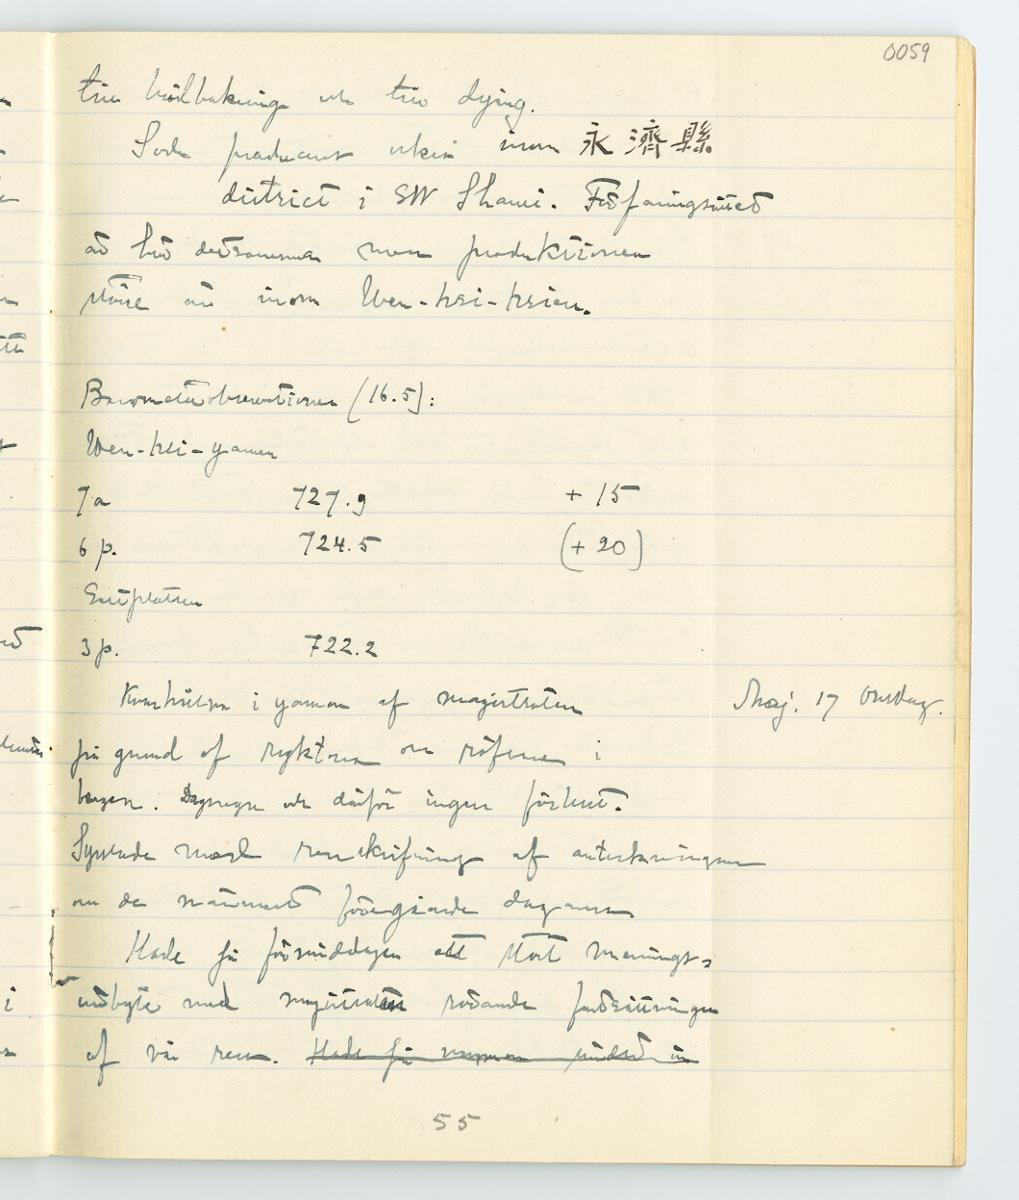 0059
till brödbakning och till dying.
Soda produceras också inom 永濟縣
district i SW Shansi. Förfaringssättet
är här detsamma men produktionen
större än inom Wen-hsi-hsien.
Barometerobservationer (16.5):
Wen-hsi-yamen
7 a 727.9 + 15
6 p. 724.5 (+ 20)
Saltplatsen
3 p. 722.2
Kvarhölls i yamen af magistraten Maj. 17 Onsdag.
på grund af rykten om röfvare i
bergen. Dagsregn och därför ingen förlust.
Sysslade med renskrifning af anteckningar
om de närmast föregående dagarna
Hade på förmiddagen ett stort menings-
utbyte med magistraten rörande fortsättningen
af vår resa. Hade på
55